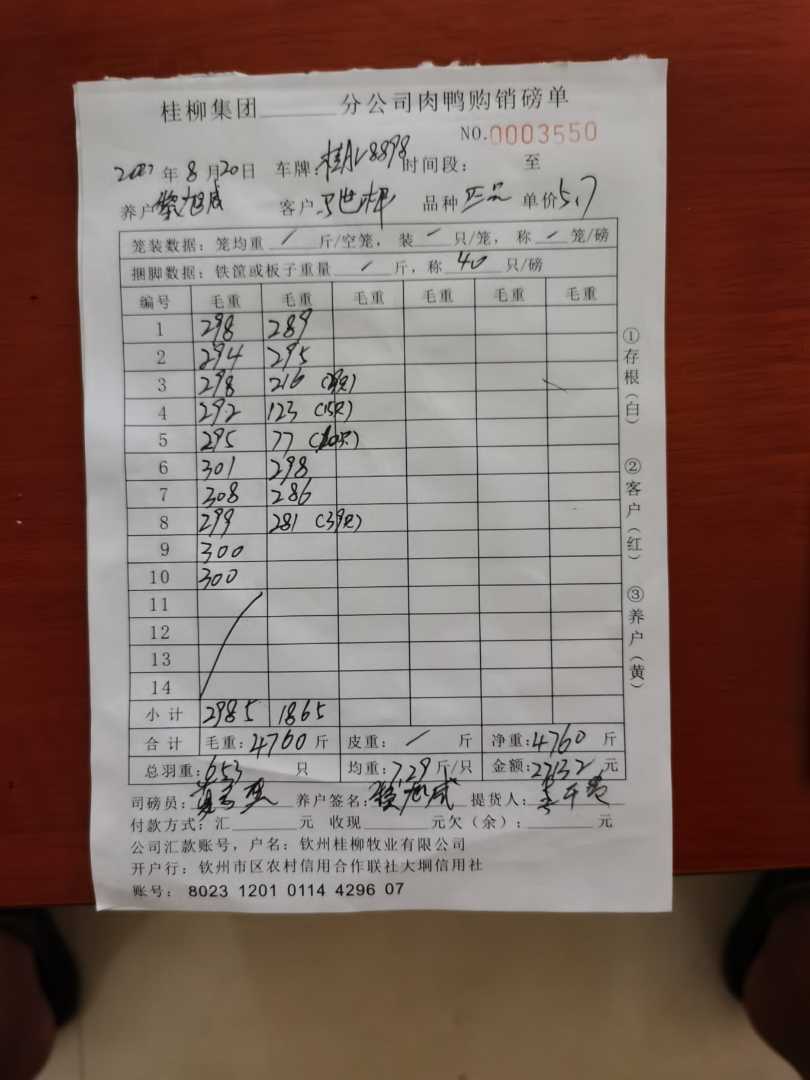 桂柳集团______分公司肉鸭购销磅单
NO.0003550
年 8 月 20 日 车牌: 桂AV8898 时间段: 至
养户 旭成 客户 马世 品种 正品 单价 5.7
笼装数据: 笼均重 / 斤/空笼, 装 / 只/笼, 称 / 笼/磅
捆脚数据: 铁筐或板子重量 / 斤, 称 40 只/磅
编号 毛重 毛重 毛重 毛重 毛重 毛重
1 298 289
2 294 295
3 298 216 (29只)
4 292 123 (15只)
5 295 77 (10只)
6 301 298
7 308 286
8 299 281 (39只)
9 300
10 300
11
12
13
14
小计 2985 1865
合计 毛重: 4760 斤 皮重: / 斤 净重: 4760 斤
总羽重: 653 只 均重: 7.29 斤/只 金额: 27132 元
司磅员: 养户签名: 旭成 提货人:
付款方式: 汇______元 收现______元欠(余): ______元
公司汇款账号, 户名: 钦州桂柳牧业有限公司
开户行: 钦州市区农村信用合作联社大垌信用社
账号: 8023 1201 0114 4296 07
①存根(白)
②客户(红)
③养户(黄)